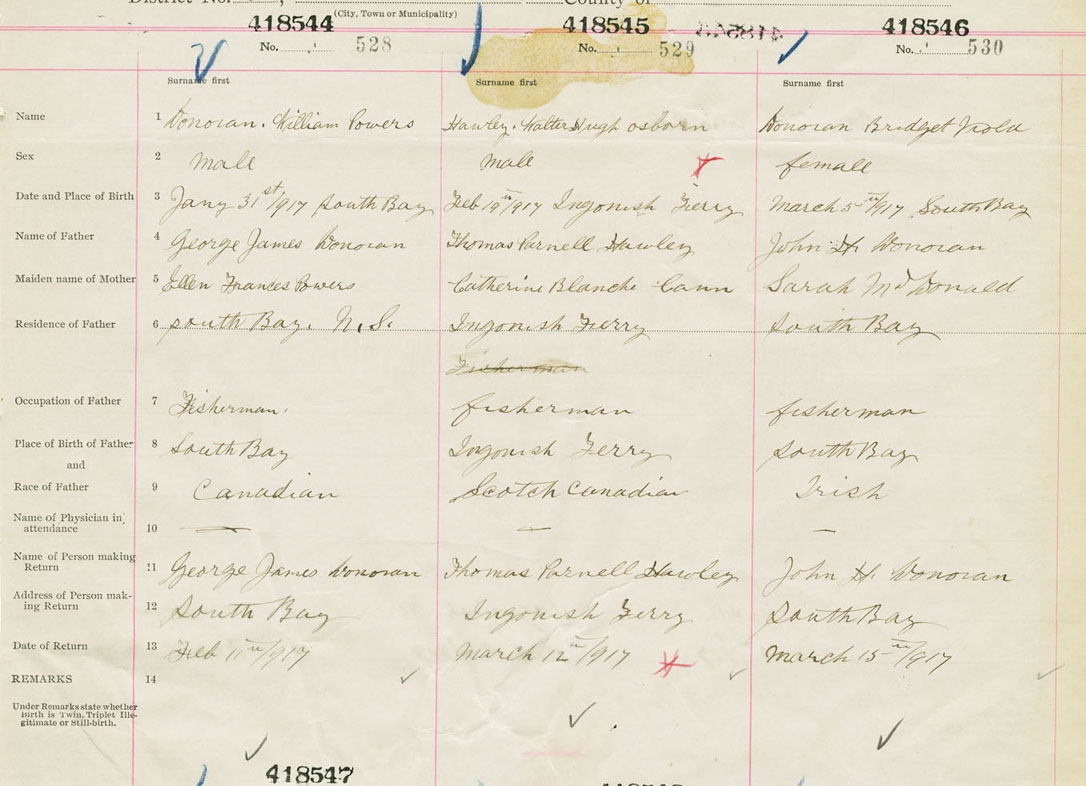 District No. County of
(City, Town or Municipality)
418544 418545 418546
No. 528 No. 529 No. 530
Surname first Surname first Surname first
Name 1 Donovan. William Powers Hawley. Walter Hugh Osborn Donovan Bridget
Sex 2 male male female
Date and Place of Birth 3 Jany 31st/1917 South Bay Feb 19th/1917 Ingonish Ferry March 5th/1917 South Bay
Name of Father 4 George James Donovan Thomas Parnell Hawley John H. Donovan
Maiden name of Mother 5 Ellen Frances Powers Catherine Blanche Cann Sarah McDonald
Residence of Father 6 South Bay. N.S. Ingonish Ferry South Bay
Fisherman
Occupation of Father 7 Fisherman. fisherman fisherman
Place of Birth of Father 8 South Bay Ingonish Ferry South Bay
and
Race of Father 9 Canadian Scotch Canadian Irish
Name of Physician in
attendance 10
Name of Person making
Return 11 George James Donovan Thomas Parnell Hawley John H. Donovan
Address of Person mak-
ing Return 12 South Bay Ingonish Ferry South Bay
Date of Return 13 Feb 11th/1917 March 12th/1917 March 15th/1917
REMARKS 14
Under Remarks state whether
Birth is Twin, Triplet Ille-
gitimate or Still-birth.
418547